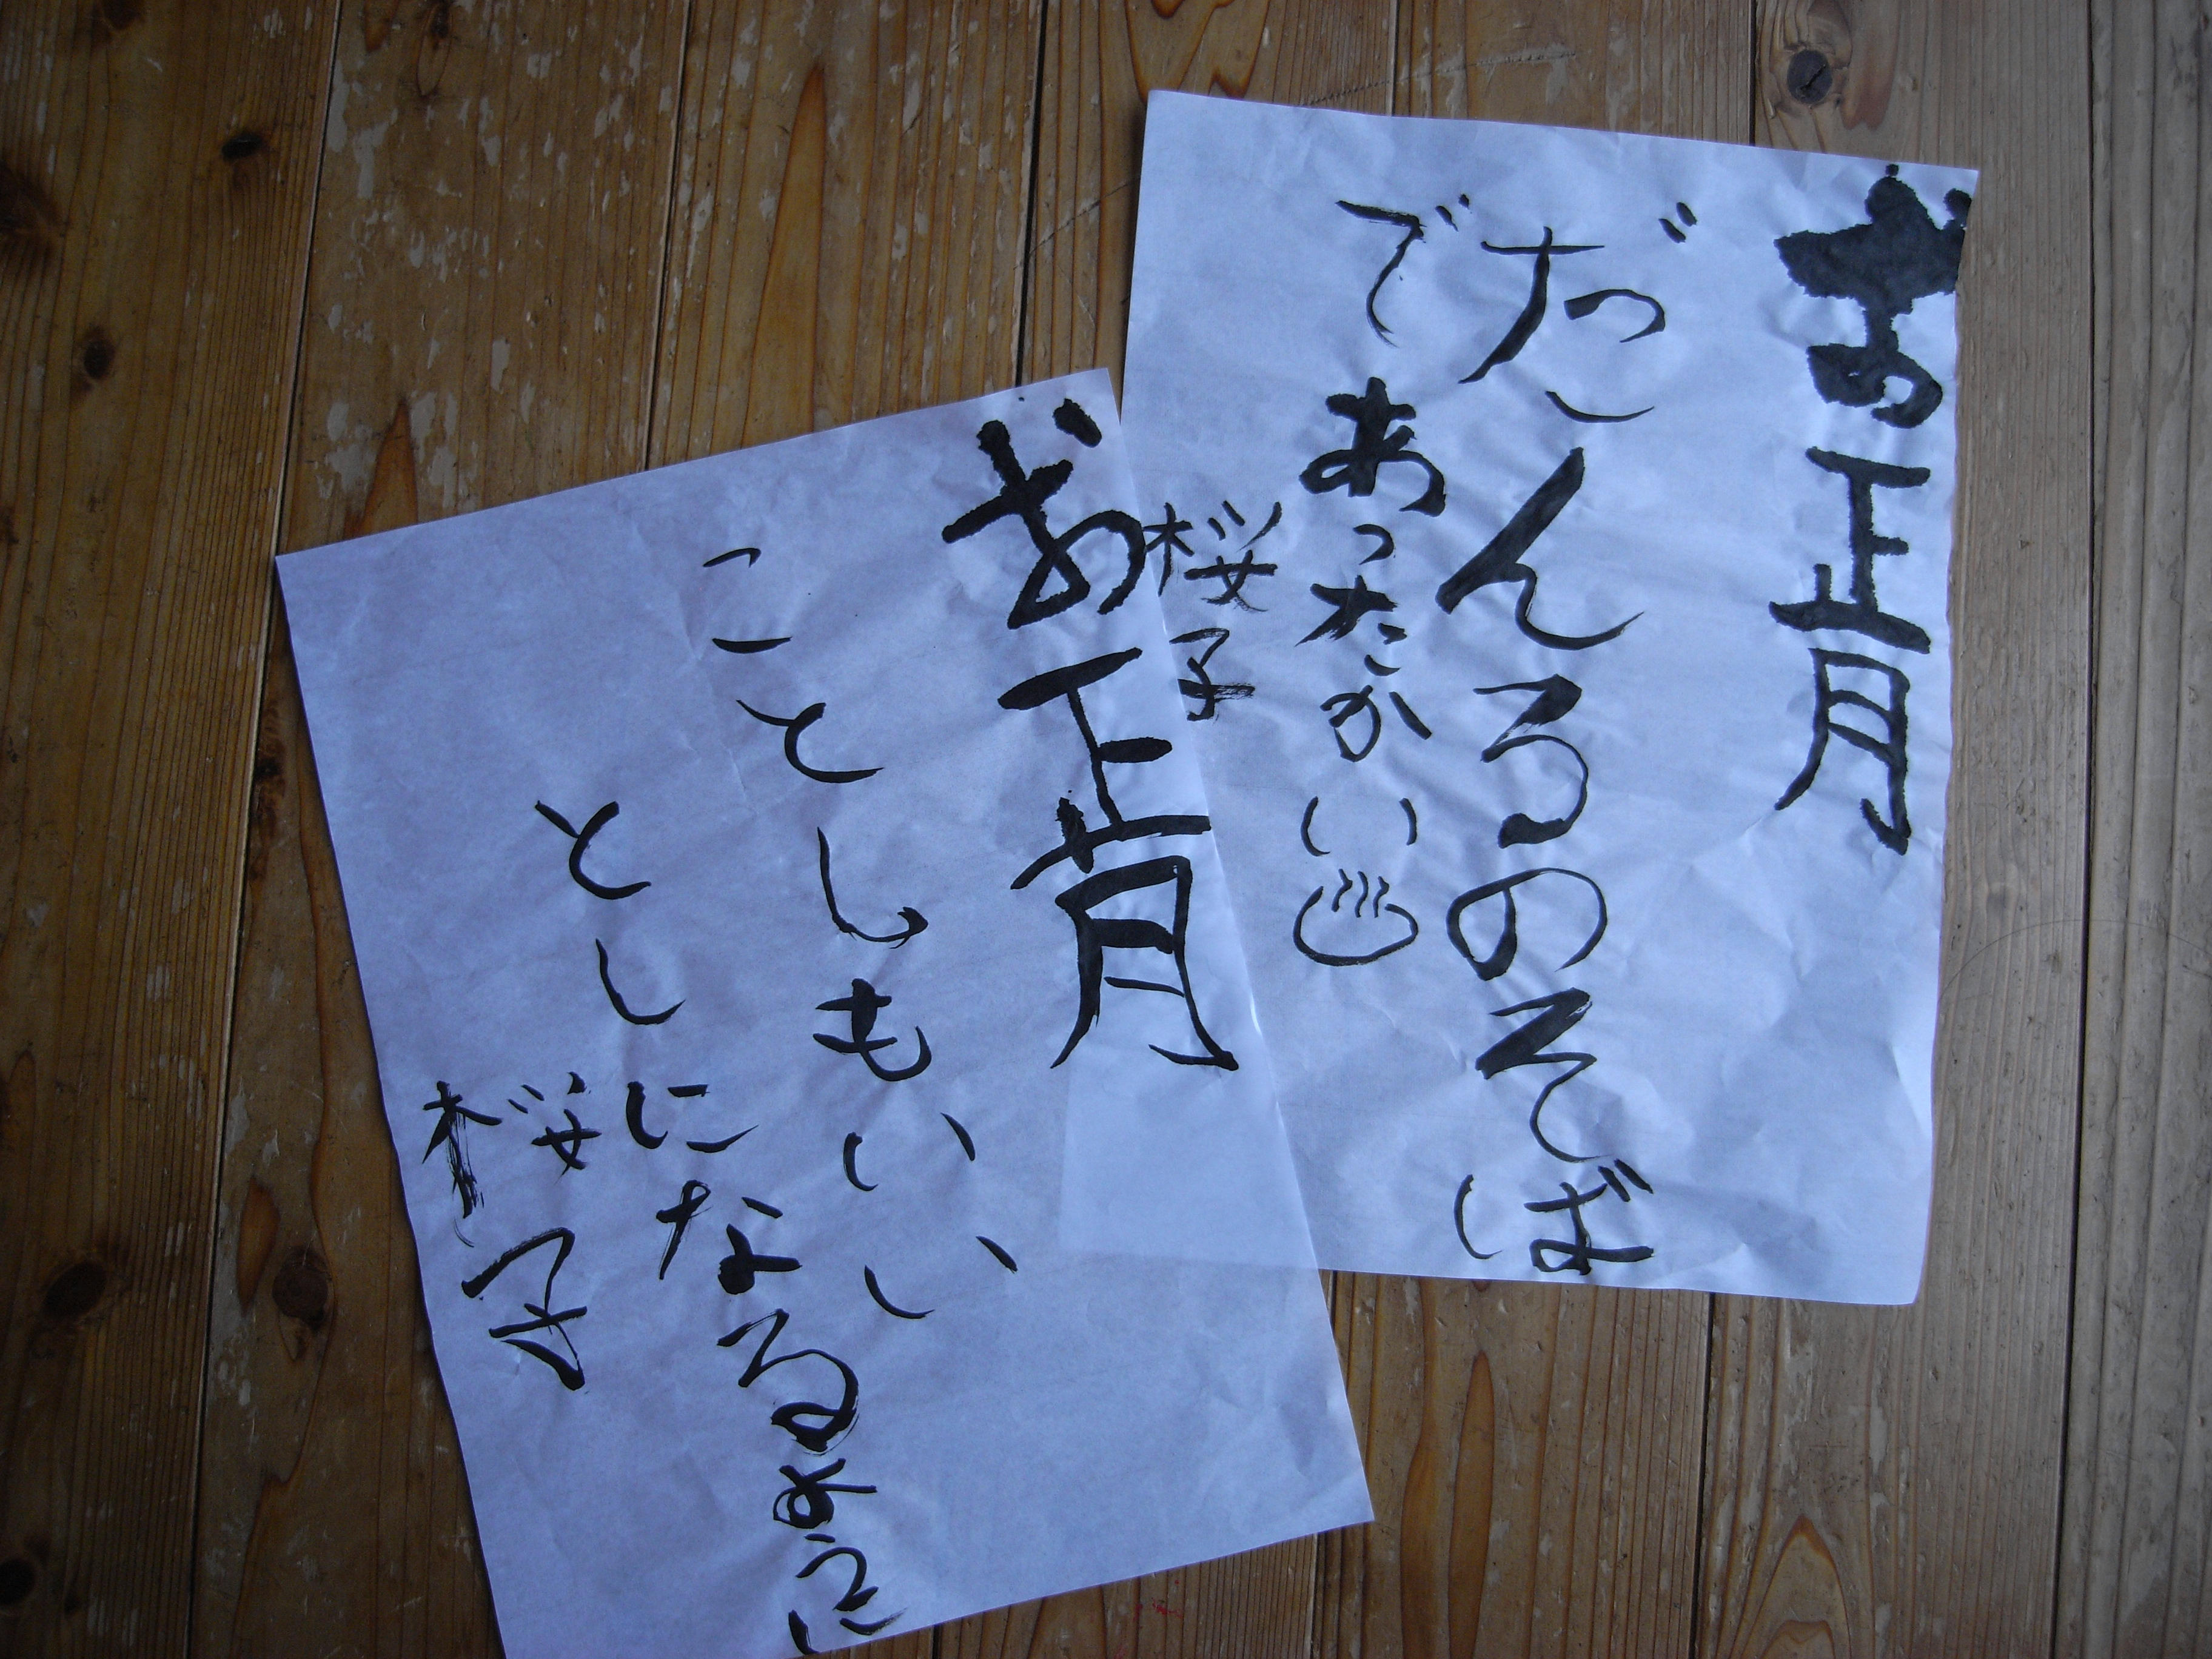 お正月
だんろのそば
であったかい♨
桜子
お正月
ことしもいい
としになるように
桜子